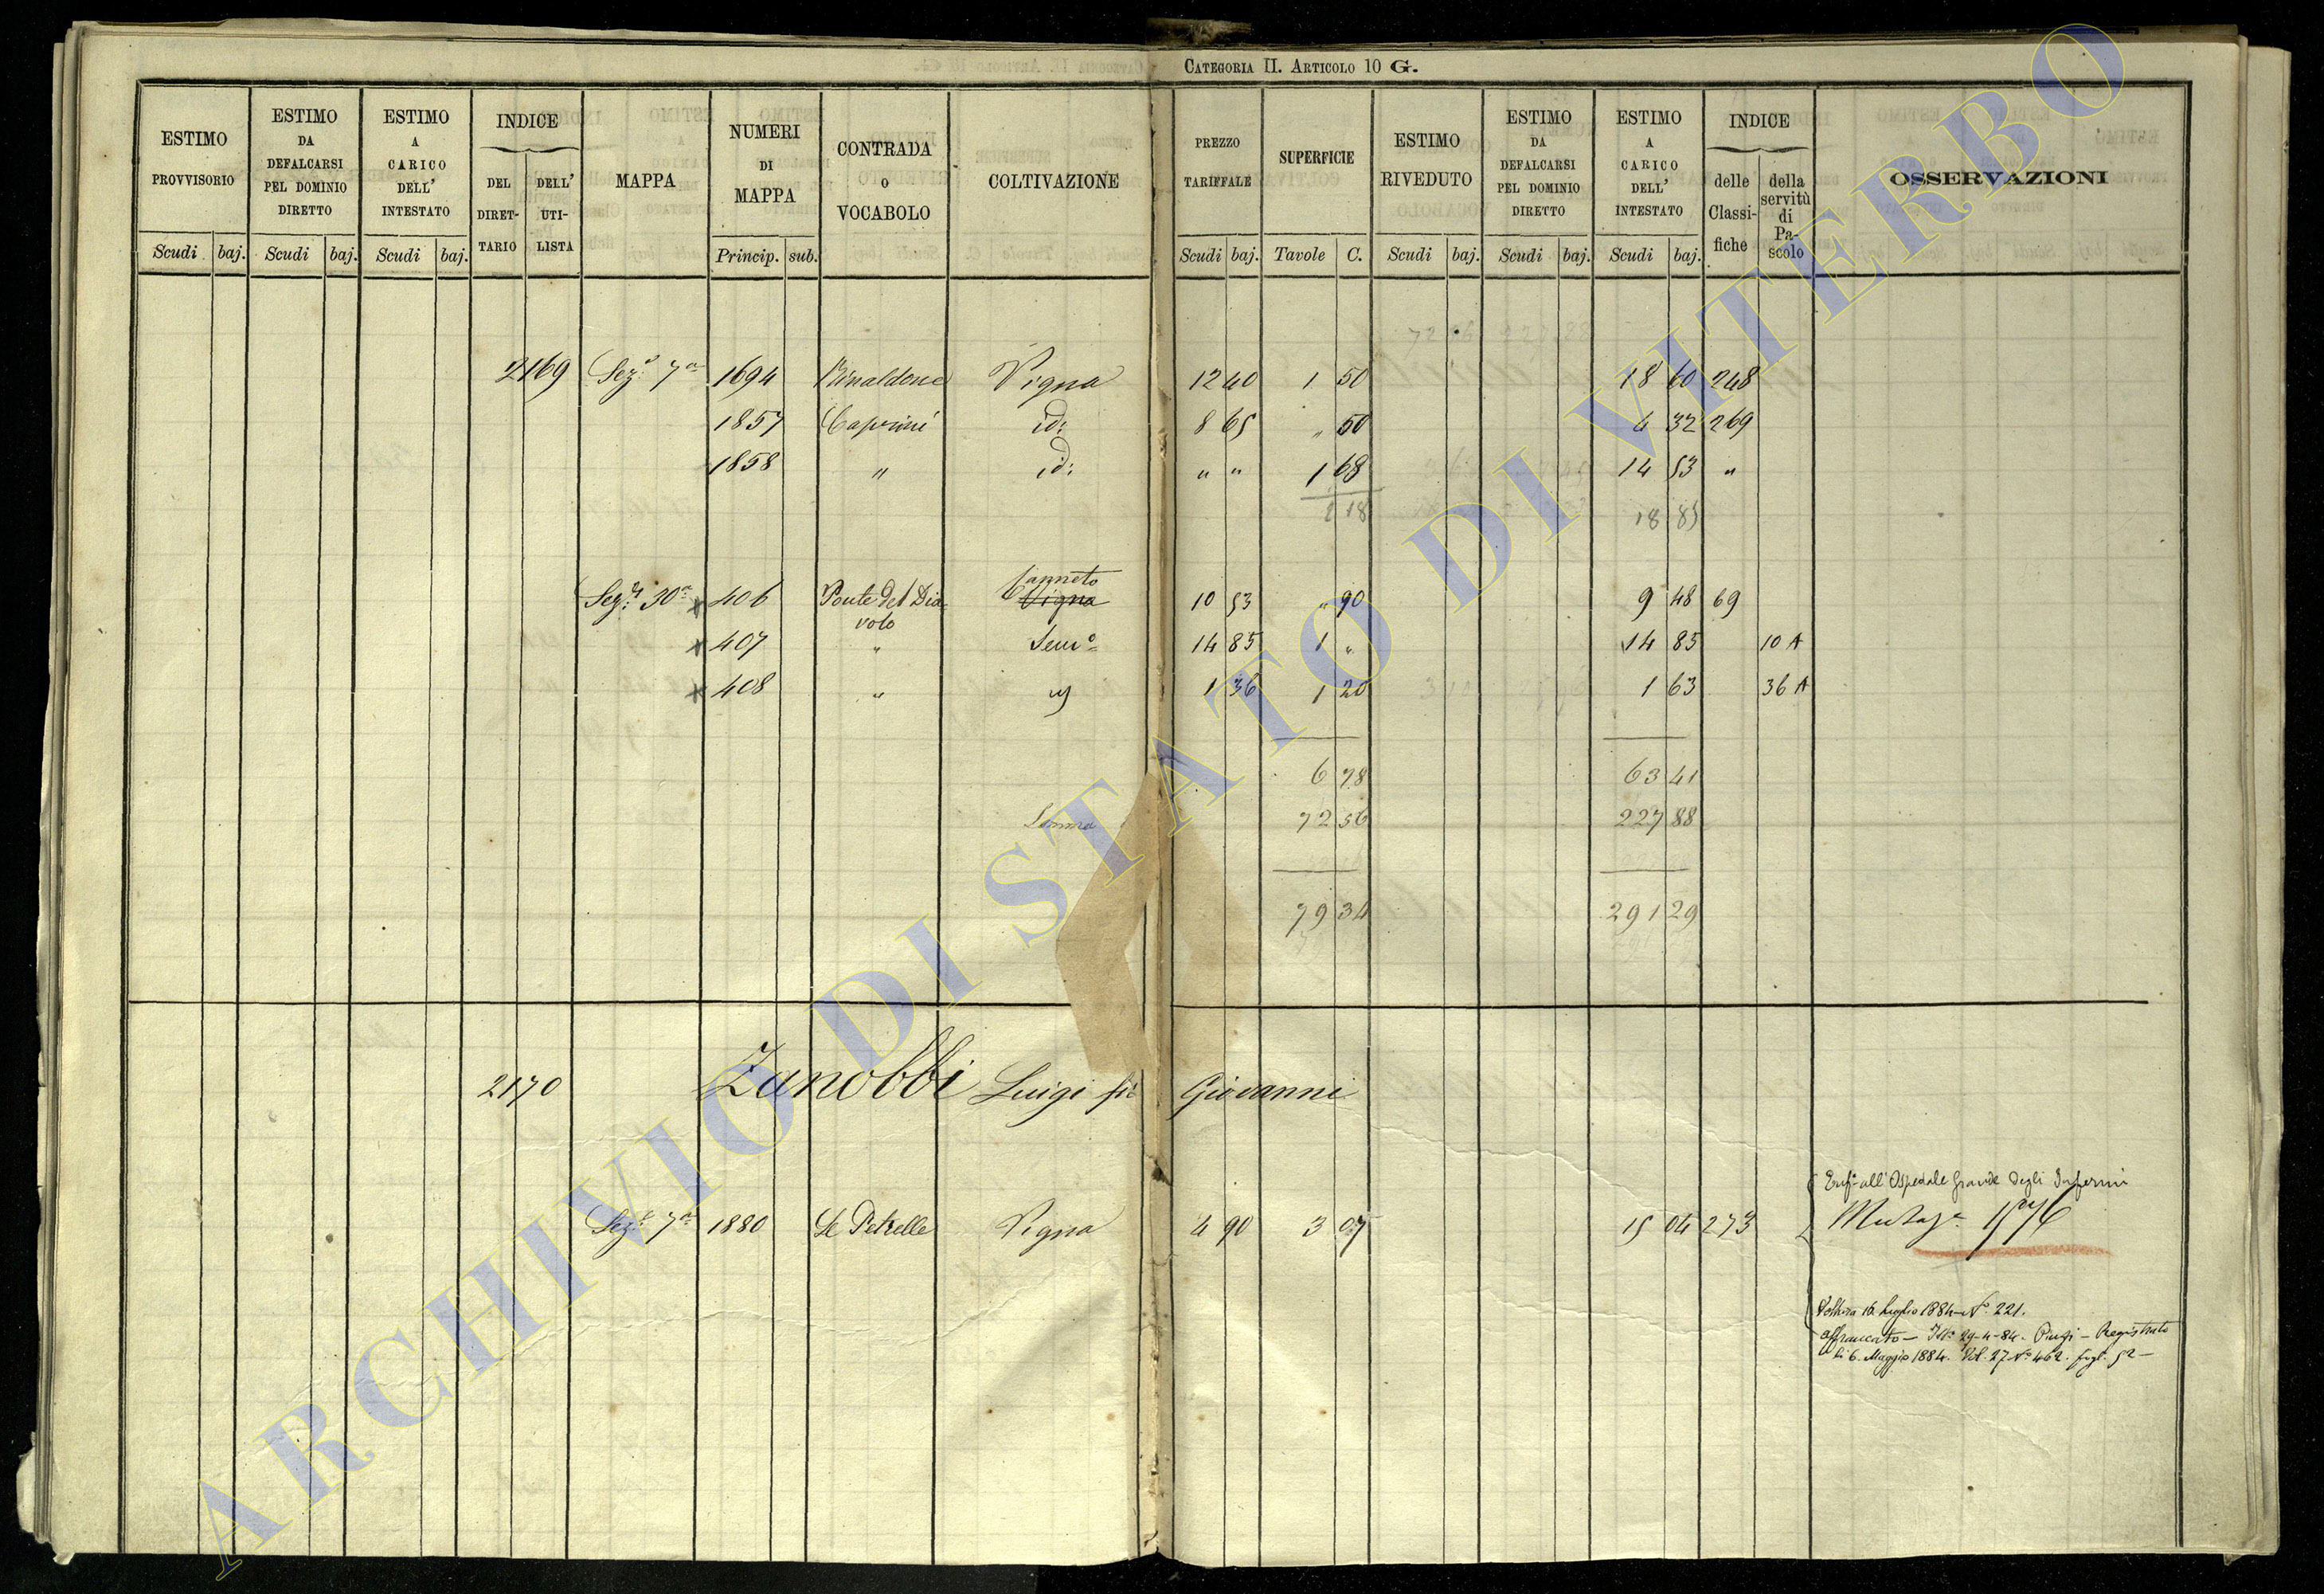 CATEGORIA II. ARTICOLO 10 G.
ESTIMO PROVVISORIO | ESTIMO DA DEFALCARSI PEL DOMINIO DIRETTO | ESTIMO A CARICO DELL' INTESTATO | INDICE | MAPPA | NUMERI DI MAPPA | CONTRADA O VOCABOLO | COLTIVAZIONE | PREZZO TARIFFALE | SUPERFICIE | ESTIMO RIVEDUTO | ESTIMO DA DEFALCARSI PEL DOMINIO DIRETTO | ESTIMO A CARICO DELL' INTESTATO | INDICE | OSSERVAZIONI
DEL DIRETTARIO | DELL' UTILISTA | delle Classifiche | della servitù di Pascolo
Scudi baj. | Scudi baj. | Scudi baj. | Princip. sub. | Scudi baj. | Tavole C. | Scudi baj. | Scudi baj. | Scudi baj.
2169 Sez.e 7a 1694 Rinaldone Vigna 12 40 1 50 18 60 248
1857 Caprini id: 8 65 " 50 4 32 269
1858 " id: " " 1 68 14 53 "
2 18 18 85
Canneto
Sez.e 30a 406 Ponte del Dia- Vigna 10 53 " 90 9 48 69
volo
407 " Semo 14 85 1 " 14 85 10 A
408 " 1 36 1 20 1 63 36 A
6 78 63 41
Somma 72 56 227 88
79 34 291 29
2170 Zanobbi Luigi fu Giovanni
all'Ospedale Grande degli Infermi
Sez.e 7a 1880 Le Petrelle Vigna 4 90 3 07 15 04 273
Voltura 16 Luglio 1884 No. 221.
affrancato — 29-4-84. — Registrato
li 6. Maggio 1884. Vol. 27 No 462. fogl. 52 —
ARCHIVIO DI STATO DI VITERBO